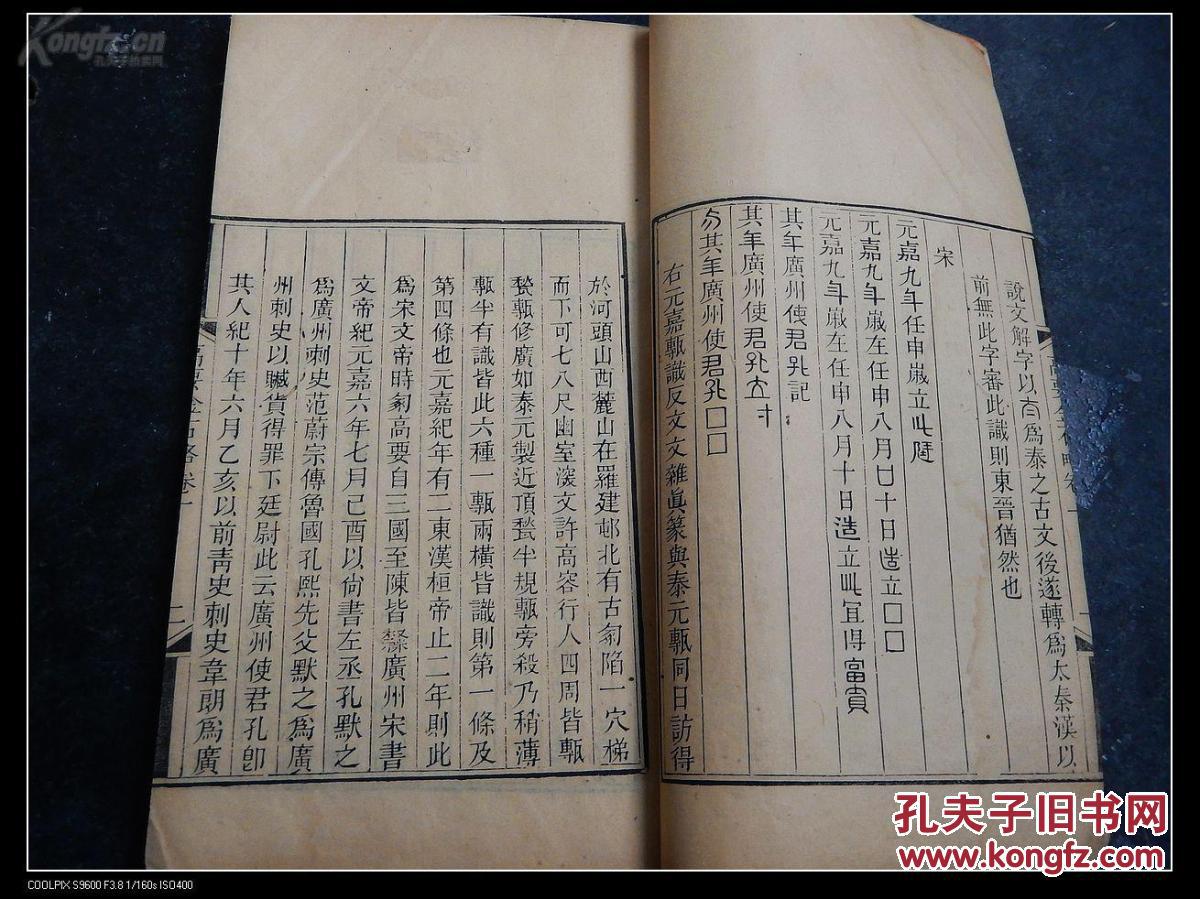 說文解字以夳為泰之古文後遂轉為太秦漢以
前無此字審此識則東晉猶然也
宋
元嘉九年任申歲立此
元嘉九年歲在任申八月廿十日造立□□
元嘉九年歲在任申八月十日造立此宜得富貴
其年廣州使君孔記
其年廣州使君孔立
其年廣州使君孔□□
右元嘉甎識反文文雜眞篆與泰元甎同日訪得
於河頭山西麓山在羅建邨北有古冢陷一穴梯
而下可七八尺幽室深丈許高容行人四周皆甎
甃甎修廣如泰元製近頂甃半規甎旁殺乃稍薄
甎半有識皆此六種一甎兩橫皆識則第一條及
第四條也元嘉紀年有二東漢桓帝止二年則此
為宋文帝時冢高要自三國至陳皆隸廣州宋書
文帝紀元嘉六年七月己酉以尙書左丞孔默之
為廣州刺史范蔚宗傳魯國孔熙先父默之為廣
州刺史以贓貨得罪下廷尉此云廣州使君孔卽
其人紀十年六月乙亥以前靑州刺史韋朗為廣
高要金石略卷一
二
Kongfz.cn
孔夫子旧书网
www.kongfz.com
COOLPIX S9600 F3.8 1/160s ISO400